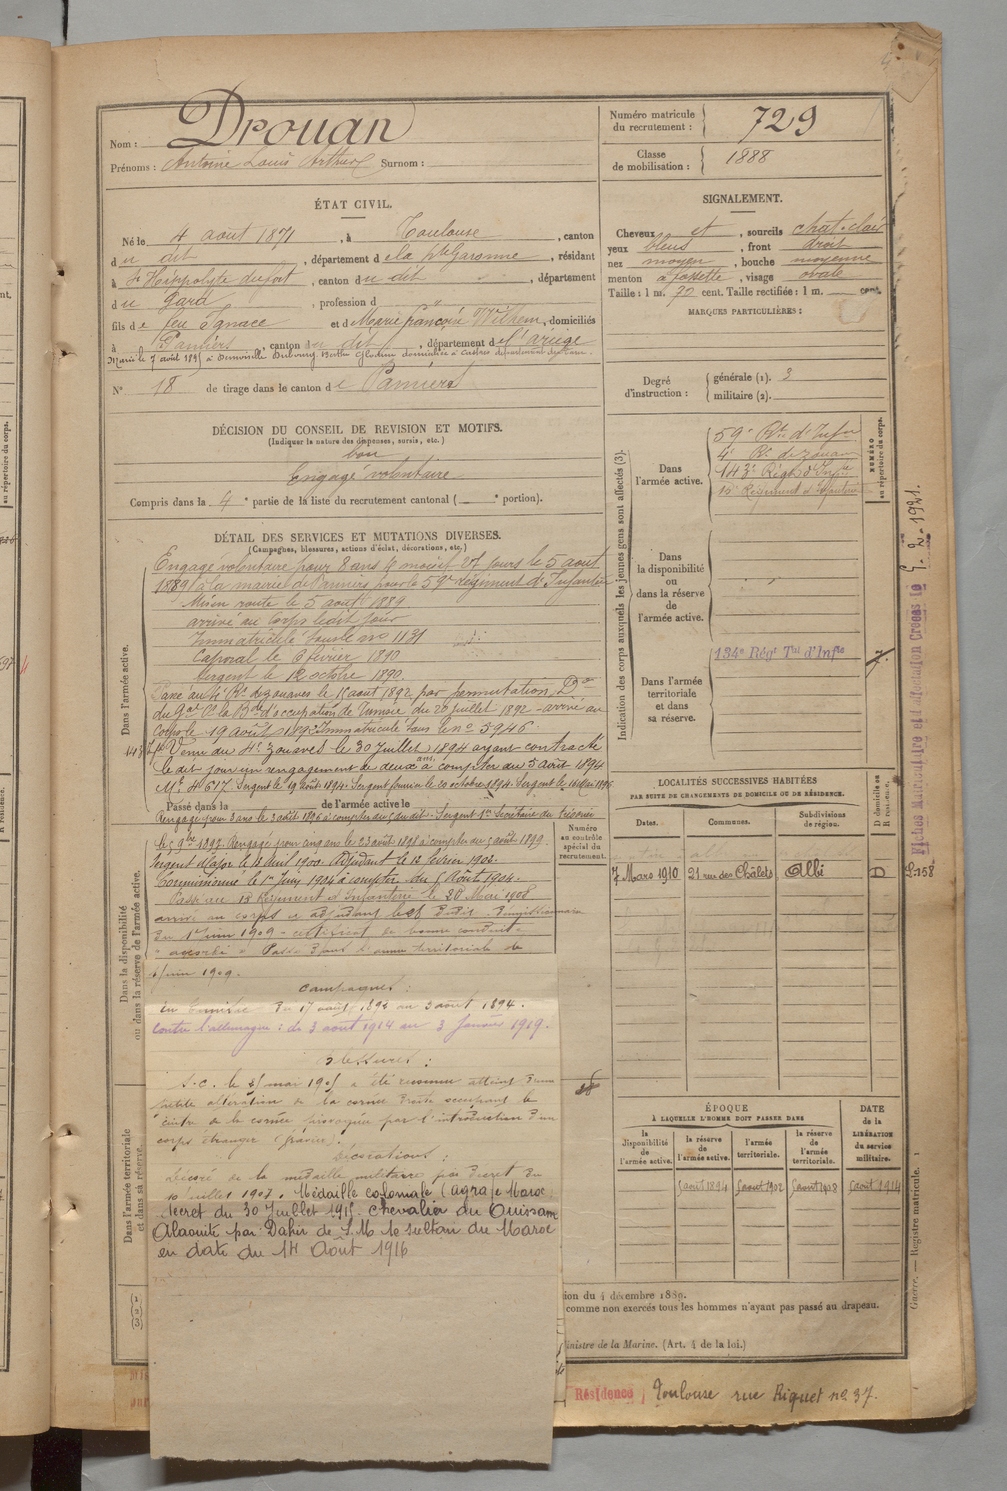 Nom : Drouan
Prénoms : Antoine Louis Arthur Surnom :
Numéro matricule du recrutement : 729
Classe de mobilisation : 1888
ÉTAT CIVIL.
Né le 4 août 1871, à Toulouse, canton
du dit, département de la Hte Garonne, résidant
à St Hippolyte du fort, canton du dit, département
du Gard, profession d
fils de feu Ignace et de Marie françoise Wilhem, domiciliés
à Pamiers, canton du dit, département de l'ariège
Marié le 7 août 1895 à
N° 18 de tirage dans le canton de Pamiers
SIGNALEMENT.
Cheveux et, sourcils chat-clair
yeux bleus, front droit
nez moyen, bouche moyenne
menton à fossette, visage ovale
Taille : 1 m. 70 cent. Taille rectifiée : 1 m. cent.
MARQUES PARTICULIÈRES :
Degré d'instruction : générale (1). 3
militaire (2).
DÉCISION DU CONSEIL DE REVISION ET MOTIFS.
(Indiquer la nature des dispenses, sursis, etc.)
bon
Engagé volontaire
Compris dans la 4e partie de la liste du recrutement cantonal ( e portion).
DÉTAIL DES SERVICES ET MUTATIONS DIVERSES.
(Campagnes, blessures, actions d'éclat, décorations, etc.)
Dans l'armée active.
Engagé volontaire pour 8 ans 4 mois et 27 jours le 5 août
1889 à la mairie de Pamiers pour le 59e régiment d'Infanterie
Mis en route le 5 août 1889
arrivé au corps ledit jour
Immatriculé sous le no 1131
Caporal le 6 février 1890
Sergent le 12 octobre 1890.
Passé au 4e Rt de zouaves le 15 août 1892 par permutation Don
du Gal Ct la Bde d'occupation de Tunisie du 20 juillet 1892 - arrivé au
Corps le 19 août 1892 Immatriculé sous le no 5946
Venu du 4e zouaves le 30 Juillet 1894 ayant contracté
le dit jour un rengagement de deux ans à compter du 5 août 1894
Sergent le 19 août 1894. Sergent fourrier le 20 octobre 1894. Sergent le
Passé dans la de l'armée active le
Rengagé pour 3 ans le 3 août 1896 à compter du 5 dudit. Sergent 1er Secrétaire du Trésorier
le 5 9bre 1897. Rengagé pour cinq ans le 23 août 1898 à compter du 5 août 1899.
Sergent Major le 12 Avril 1900. Adjudant le 12 février 1902.
Commissionné le 1er Juin 1904 à compter du 5 Août 1904.
Passé au 15 Régiment d'Infanterie le 20 Mai 1908
arrivé au corps et adjudant le dit
Du 1er Juin 1909 - certificat de bonne conduite
accordé. Passé dans l'armée territoriale le
Juin 1909.
Dans la disponibilité ou dans la réserve de l'armée active.
Numéro au contrôle spécial du recrutement.
Campagnes :
En Tunisie du 17 août 1892 au 3 août 1894.
Contre l'allemagne : du 3 août 1914 au 3 Janvier 1919.
Blessures :
S.C. le mai 1905 a été reconnu atteint d'une
petite altération de la cornée droite occupant le
centre de la cornée provoquée par l'introduction d'un
corps étranger
Décorations :
décoré de la médaille militaire par décret du
10 Juillet 1907. Médaille coloniale (agrafe Maroc)
décret du 30 Juillet 1915. Chevalier du Ouissam
Alaouite par Dahir de S.M. le sultan du Maroc
en date du 14 Août 1916
Dans l'armée territoriale et dans sa réserve.
(1) (2) (3)
Indication des corps auxquels les jeunes gens sont affectés (3).
NUMÉRO au répertoire du corps.
Dans l'armée active.
59e Rt d'Infie
4e Rt de zouaves
143e Régt d'Infie
15e Régiment d'Infanterie
Dans la disponibilité ou dans la réserve de l'armée active.
Dans l'armée territoriale et dans sa réserve.
134e Régt Tal d'Infie
LOCALITÉS SUCCESSIVES HABITÉES
PAR SUITE DE CHANGEMENTS DE DOMICILE OU DE RÉSIDENCE.
Dates. Communes. Subdivisions de région. D domicile ou R résidence.
7 Mars 1910 21 rue des Châlets Albi D
ÉPOQUE
À LAQUELLE L'HOMME DOIT PASSER DANS
la disponibilité de l'armée active. la réserve de l'armée active. l'armée territoriale. la réserve de l'armée territoriale.
DATE de la LIBÉRATION du service militaire.
5 août 1894 5 août 1902 5 août 1908 5 août 1914
tion du 4 décembre 1889.
comme non exercés tous les hommes n'ayant pas passé au drapeau.
Ministre de la Marine. (Art. 4 de la loi.)
Guerre. — Registre matricule. 1
Fiches Matriculaire et d'affectation Créées le 9.2.1921.
Résidence Toulouse rue Riquet no 37.